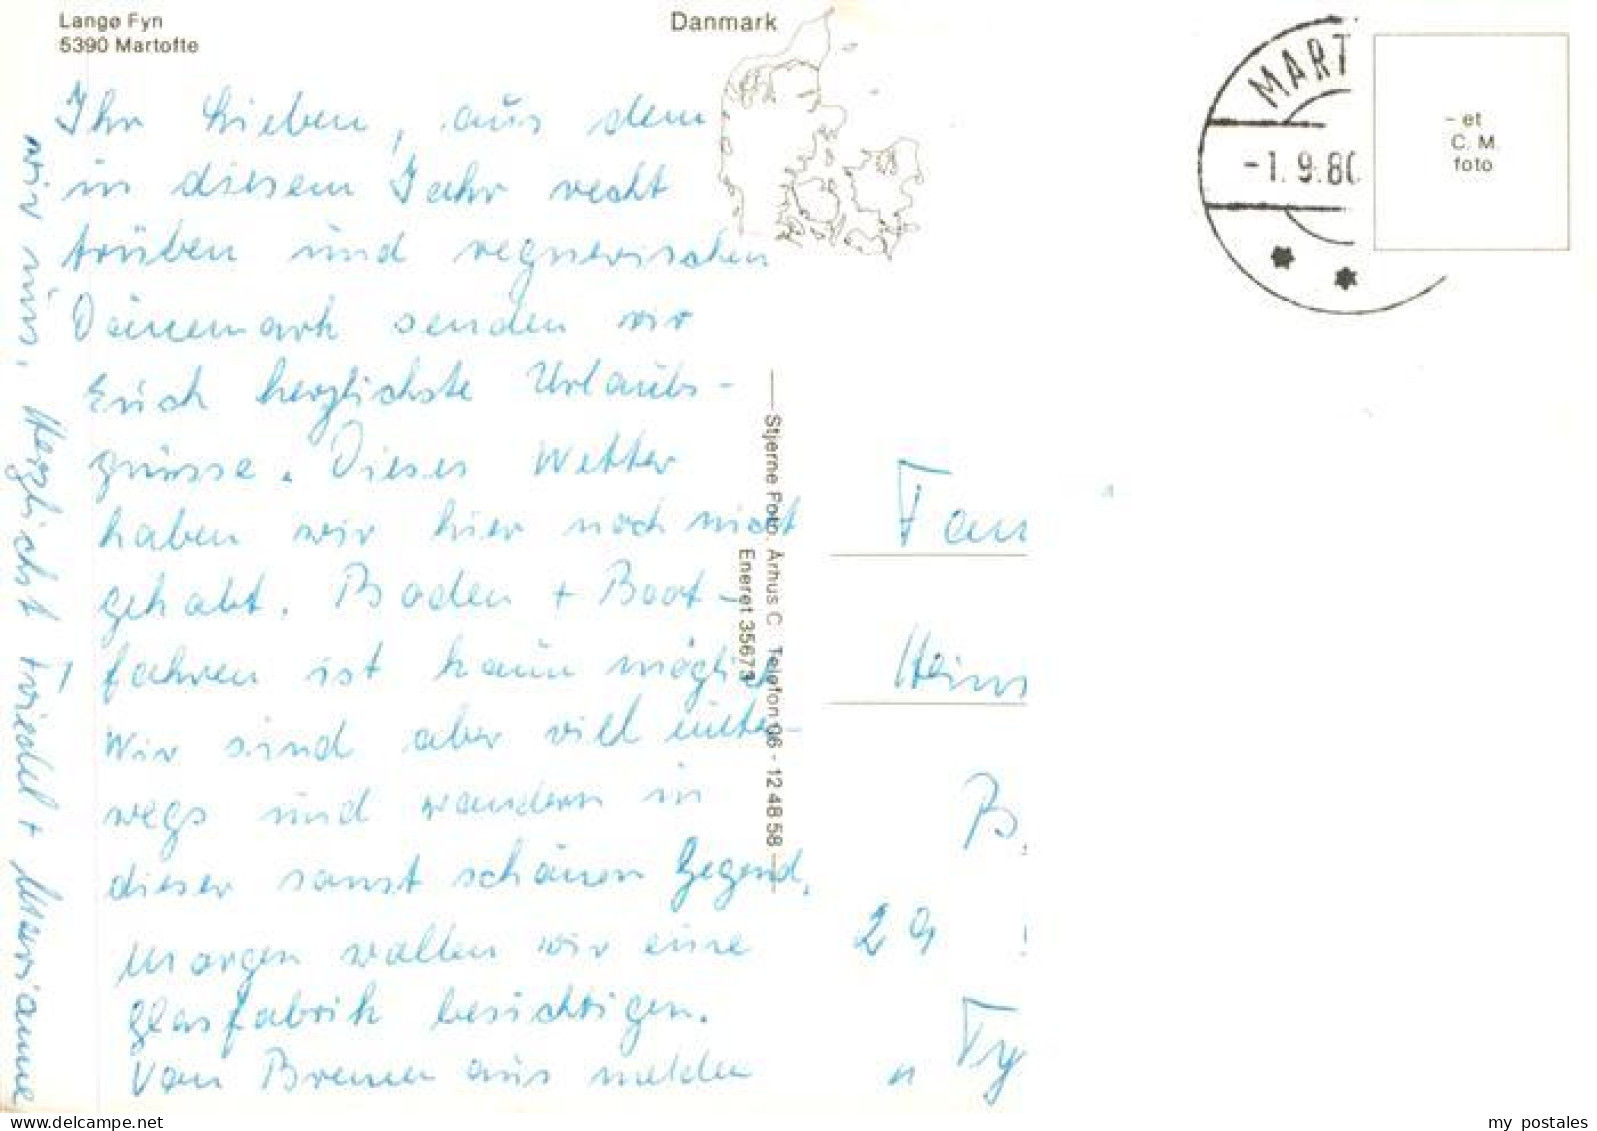 Langø Fyn
5390 Martofte
Danmark
Ihr Lieben, aus dem
in diesem Jahr recht
trüben und regnerischen
Dänemark senden wir
Euch herzlichste Urlaubs-
grüsse. Dieses Wetter
haben wir hier noch nicht
gehabt. Baden + Boot-
fahren ist kaum möglich
Wir sind aber viel unter-
wegs und wandern in
dieser sonst schönen Gegend.
Morgen wollen wir eine
Glasfabrik besichtigen.
Von Bremen aus melden
wir uns. Herzlichst Friedel + Marianne
Stjerne Foto, Århus C. Telefon 06 - 12 48 58
Eneret 35673
MART
-1.9.80
- et
C. M.
foto
Fam
Heins
B
29
" Ty
delcampe.net
my_postales